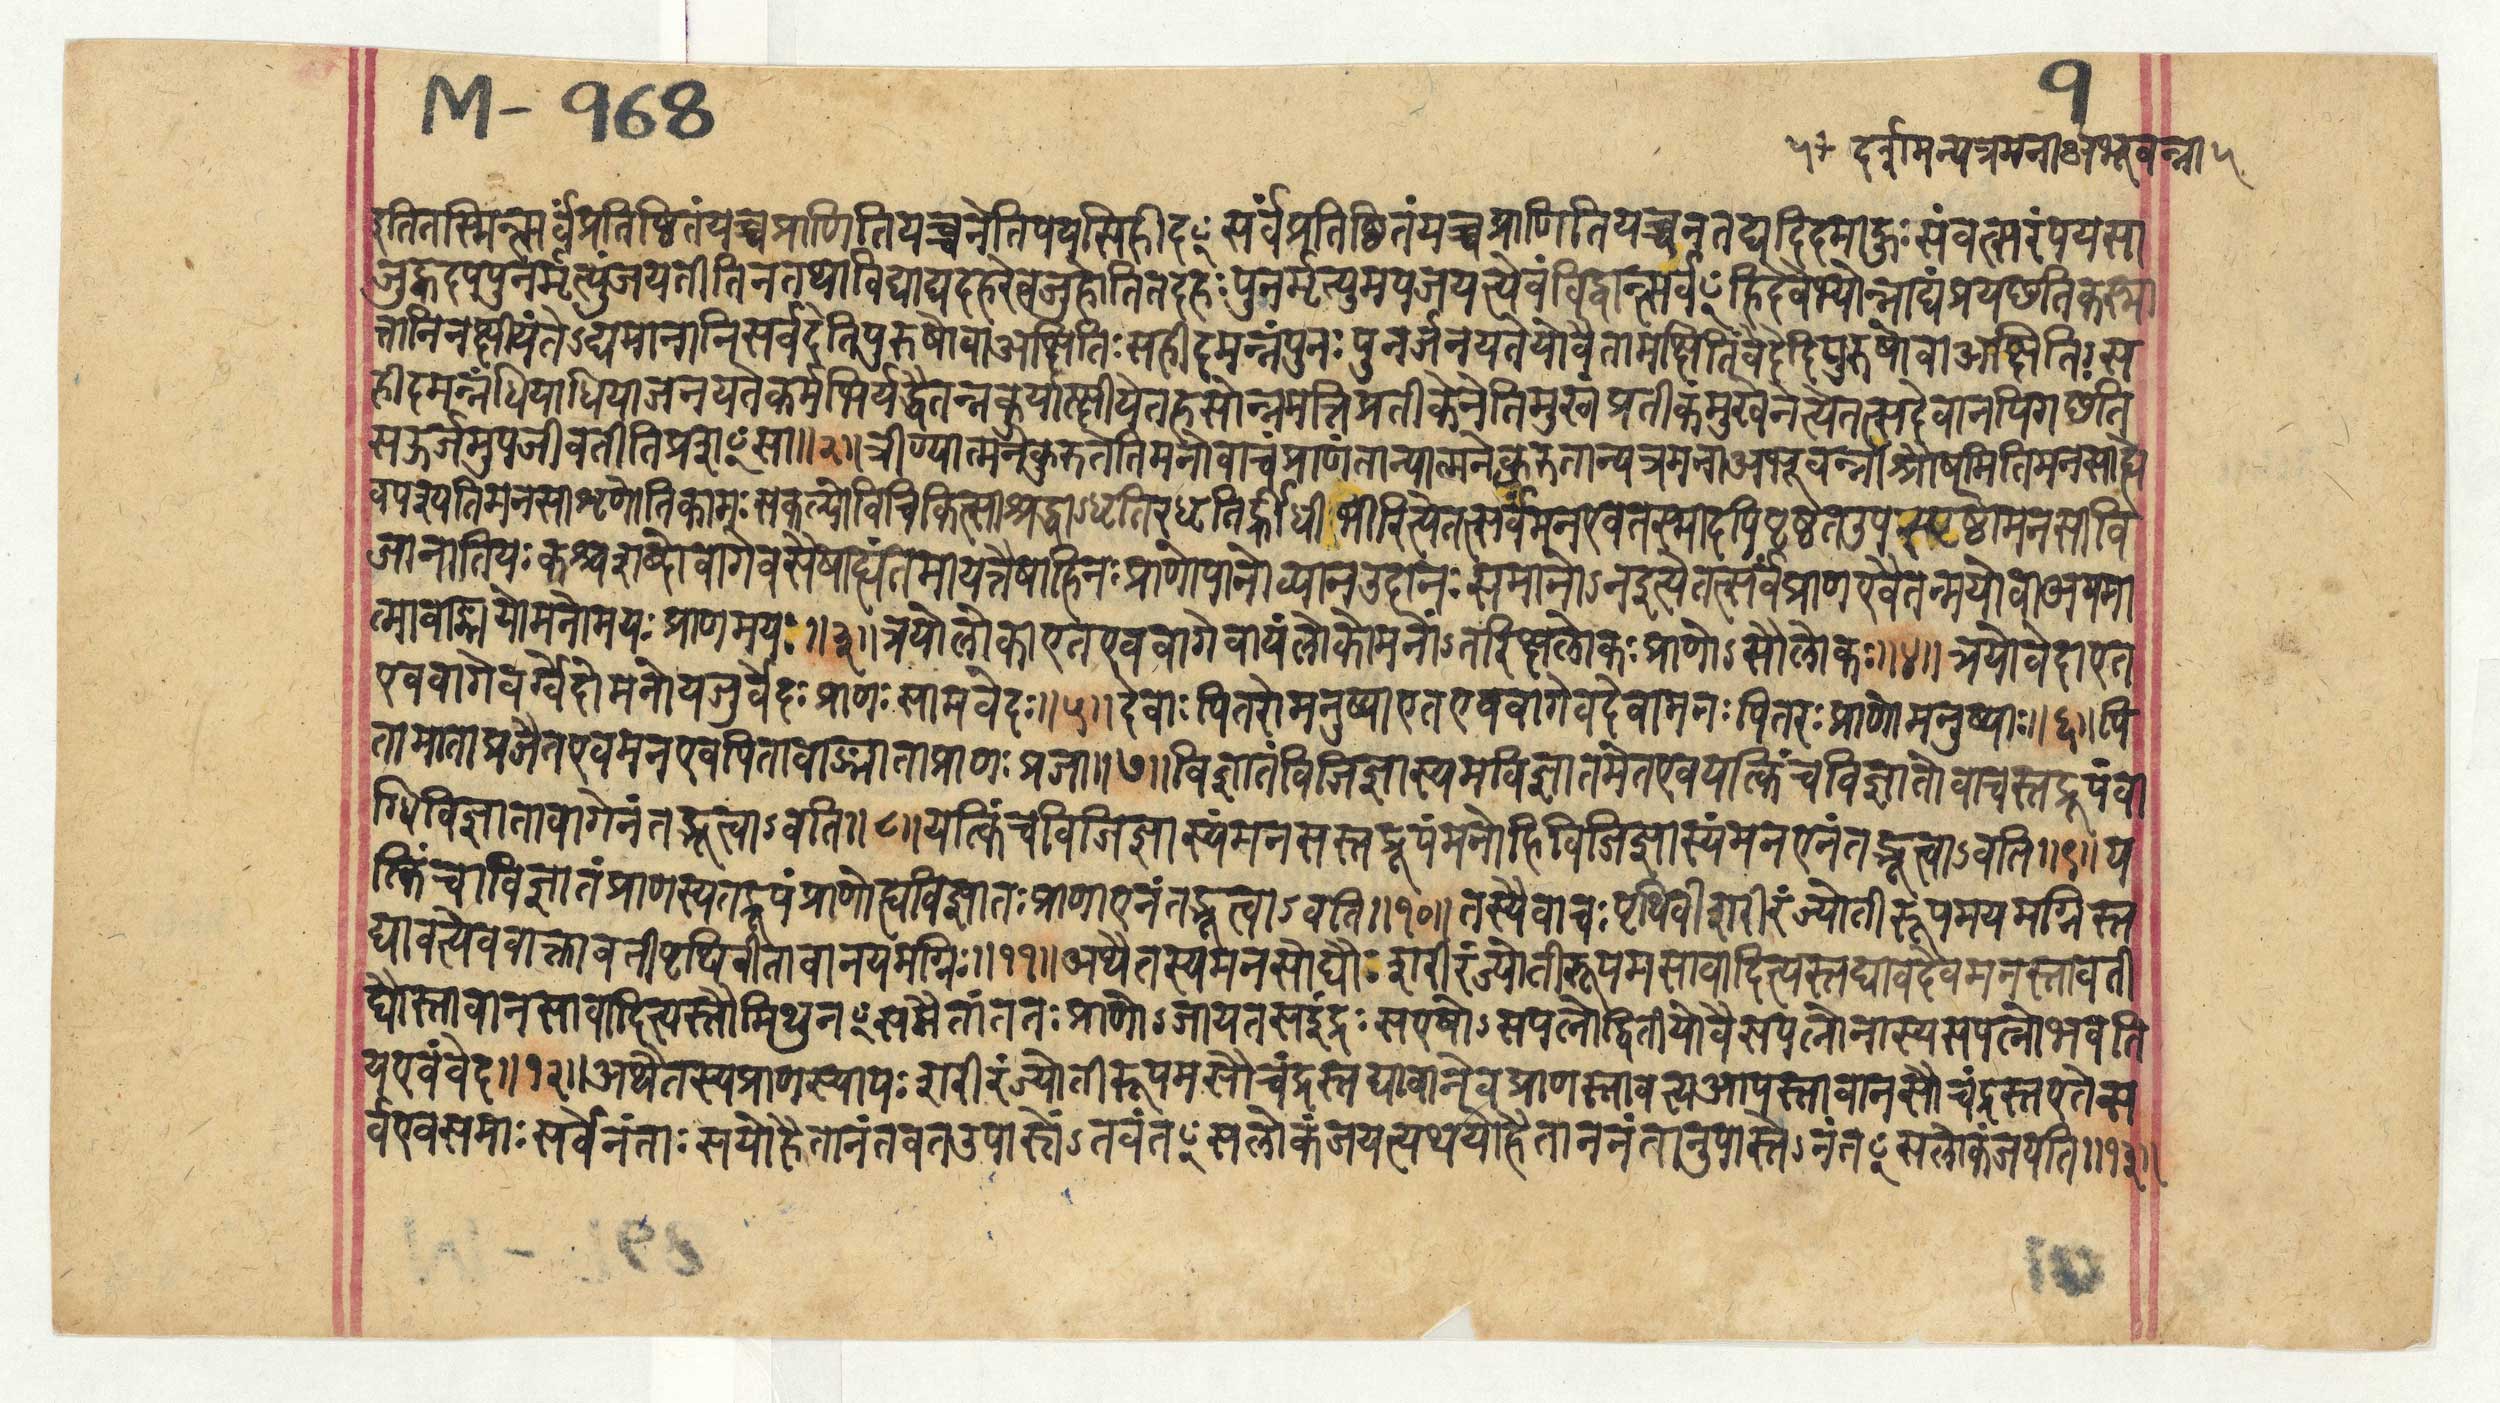 M - 968
१
५÷ दर्शमन्यत्रमनाअभूवन्ना५
इतितस्मिन्त्सर्वंप्रतिष्ठितंयच्चप्राणितियच्चनेतिपयसिहीद ँ सर्वंप्रतिष्ठितंयच्चप्राणितियच्चनतद्यदिदमाहुःसंवत्सरंपयसा
जुह्वदपपुनर्मृत्युंजयतीतिनतथाविद्याद्यदहरेवजुहोतितदहःपुनर्मृत्युमपजयत्येवंविद्वान्त्सर्व ँहिदेवेभ्योन्नाद्यंप्रयछतिकस्मा
त्तानिनक्षीयंतेऽद्यमानानिसर्वदेतिपुरुषोवाअक्षितिःसहीदमन्नंपुनःपुनर्जनयतेयोवैतामक्षितिंवेदेतिपुरुषोवाअक्षितिःस
हीदमन्नंधियाधियाजनयतेकर्मभिर्यद्धैतन्नकुर्यात्क्षीयेतहसोन्नमत्तिप्रतीकेनेतिमुखंप्रतीकंमुखेनेत्येतत्सदेवानपिगछति
सऊर्जमुपजीवतीतिप्रश ँसा॥२॥त्रीण्यात्मनेकुरुतेतिमनोवाचंप्राणंतान्यात्मनेकुरुतान्यत्रमनाअभूवन्नाश्रौषमितिमनसाह्ये
वपश्यतिमनसाशृणोतिकामःसंकल्पोविचिकित्साश्रद्धाऽधृतिरधृतिर्ह्रीधीर्भीरित्येतत्सर्वंमनएवतस्मादपिपृष्ठतउपस्पृष्टोमनसावि
जानातियःकश्चशब्दोवागेवसैषाह्यंतमायत्तैषाहिनःप्राणोपानोव्यानउदानःसमानोऽनइत्येतत्सर्वंप्राणएवैतन्मयोवाअयमा
त्मावाङ्मयोमनोमयःप्राणमयः॥३॥त्रयोलोकाएतएववागेवायंलोकोमनोंऽतरिक्षलोकःप्राणोऽसौलोकः॥४॥त्रयोवेदाएत
एववागेवर्ग्वेदोमनोयजुर्वेदःप्राणःसामवेदः॥५॥देवाःपितरोमनुष्याएतएववागेवदेवामनःपितरःप्राणोमनुष्याः॥६॥पि
तामाताप्रजैतएवमनएवपितावाङ्माताप्राणःप्रजा॥७॥विज्ञातंविजिज्ञास्यमविज्ञातमेतएवयत्किंचविज्ञातोवाचस्तद्रूपंवा
ग्धिविज्ञातावागेनंतद्भूत्वाऽवति॥८॥यत्किंचविजिज्ञास्यंमनसस्तद्रूपंमनोहिविजिज्ञास्यंमनएनंतद्भूत्वाऽवति॥९॥य
त्किंचाविज्ञातंप्राणस्यतद्रूपंप्राणोह्यविज्ञातःप्राणएनंतद्भूत्वाऽवति॥१०॥तस्यैवाचःपृथिवीशरीरंज्योतीरूपमयमग्निस्त
द्यावत्येववाक्तावतीपृथिवीतावानयमग्निः॥११॥अथैतस्यमनसोद्यौःशरीरंज्योतीरूपमसावादित्यस्तद्यावदेवमनस्तावती
द्यौस्तावानसावादित्यस्तौमिथुन ँसमैतांततःप्राणोऽजायतसइंद्रःसएषोऽसपत्नोद्वितीयोवैसपत्नोनास्यसपत्नोभवति
यएवंवेद॥१२॥अथैतस्यप्राणस्यापःशरीरंज्योतीरूपमसौचंद्रस्तद्यावानेवप्राणस्तावत्यआपस्तावानसौचंद्रस्तएतेस
र्वएवसमाःसर्वेनंताःसयोहैतानंतवतउपास्तेंऽतवंत ँसलोकंजयत्यथयोहैताननंतानुपास्तेऽनंत ँसलोकंजयति॥१३॥